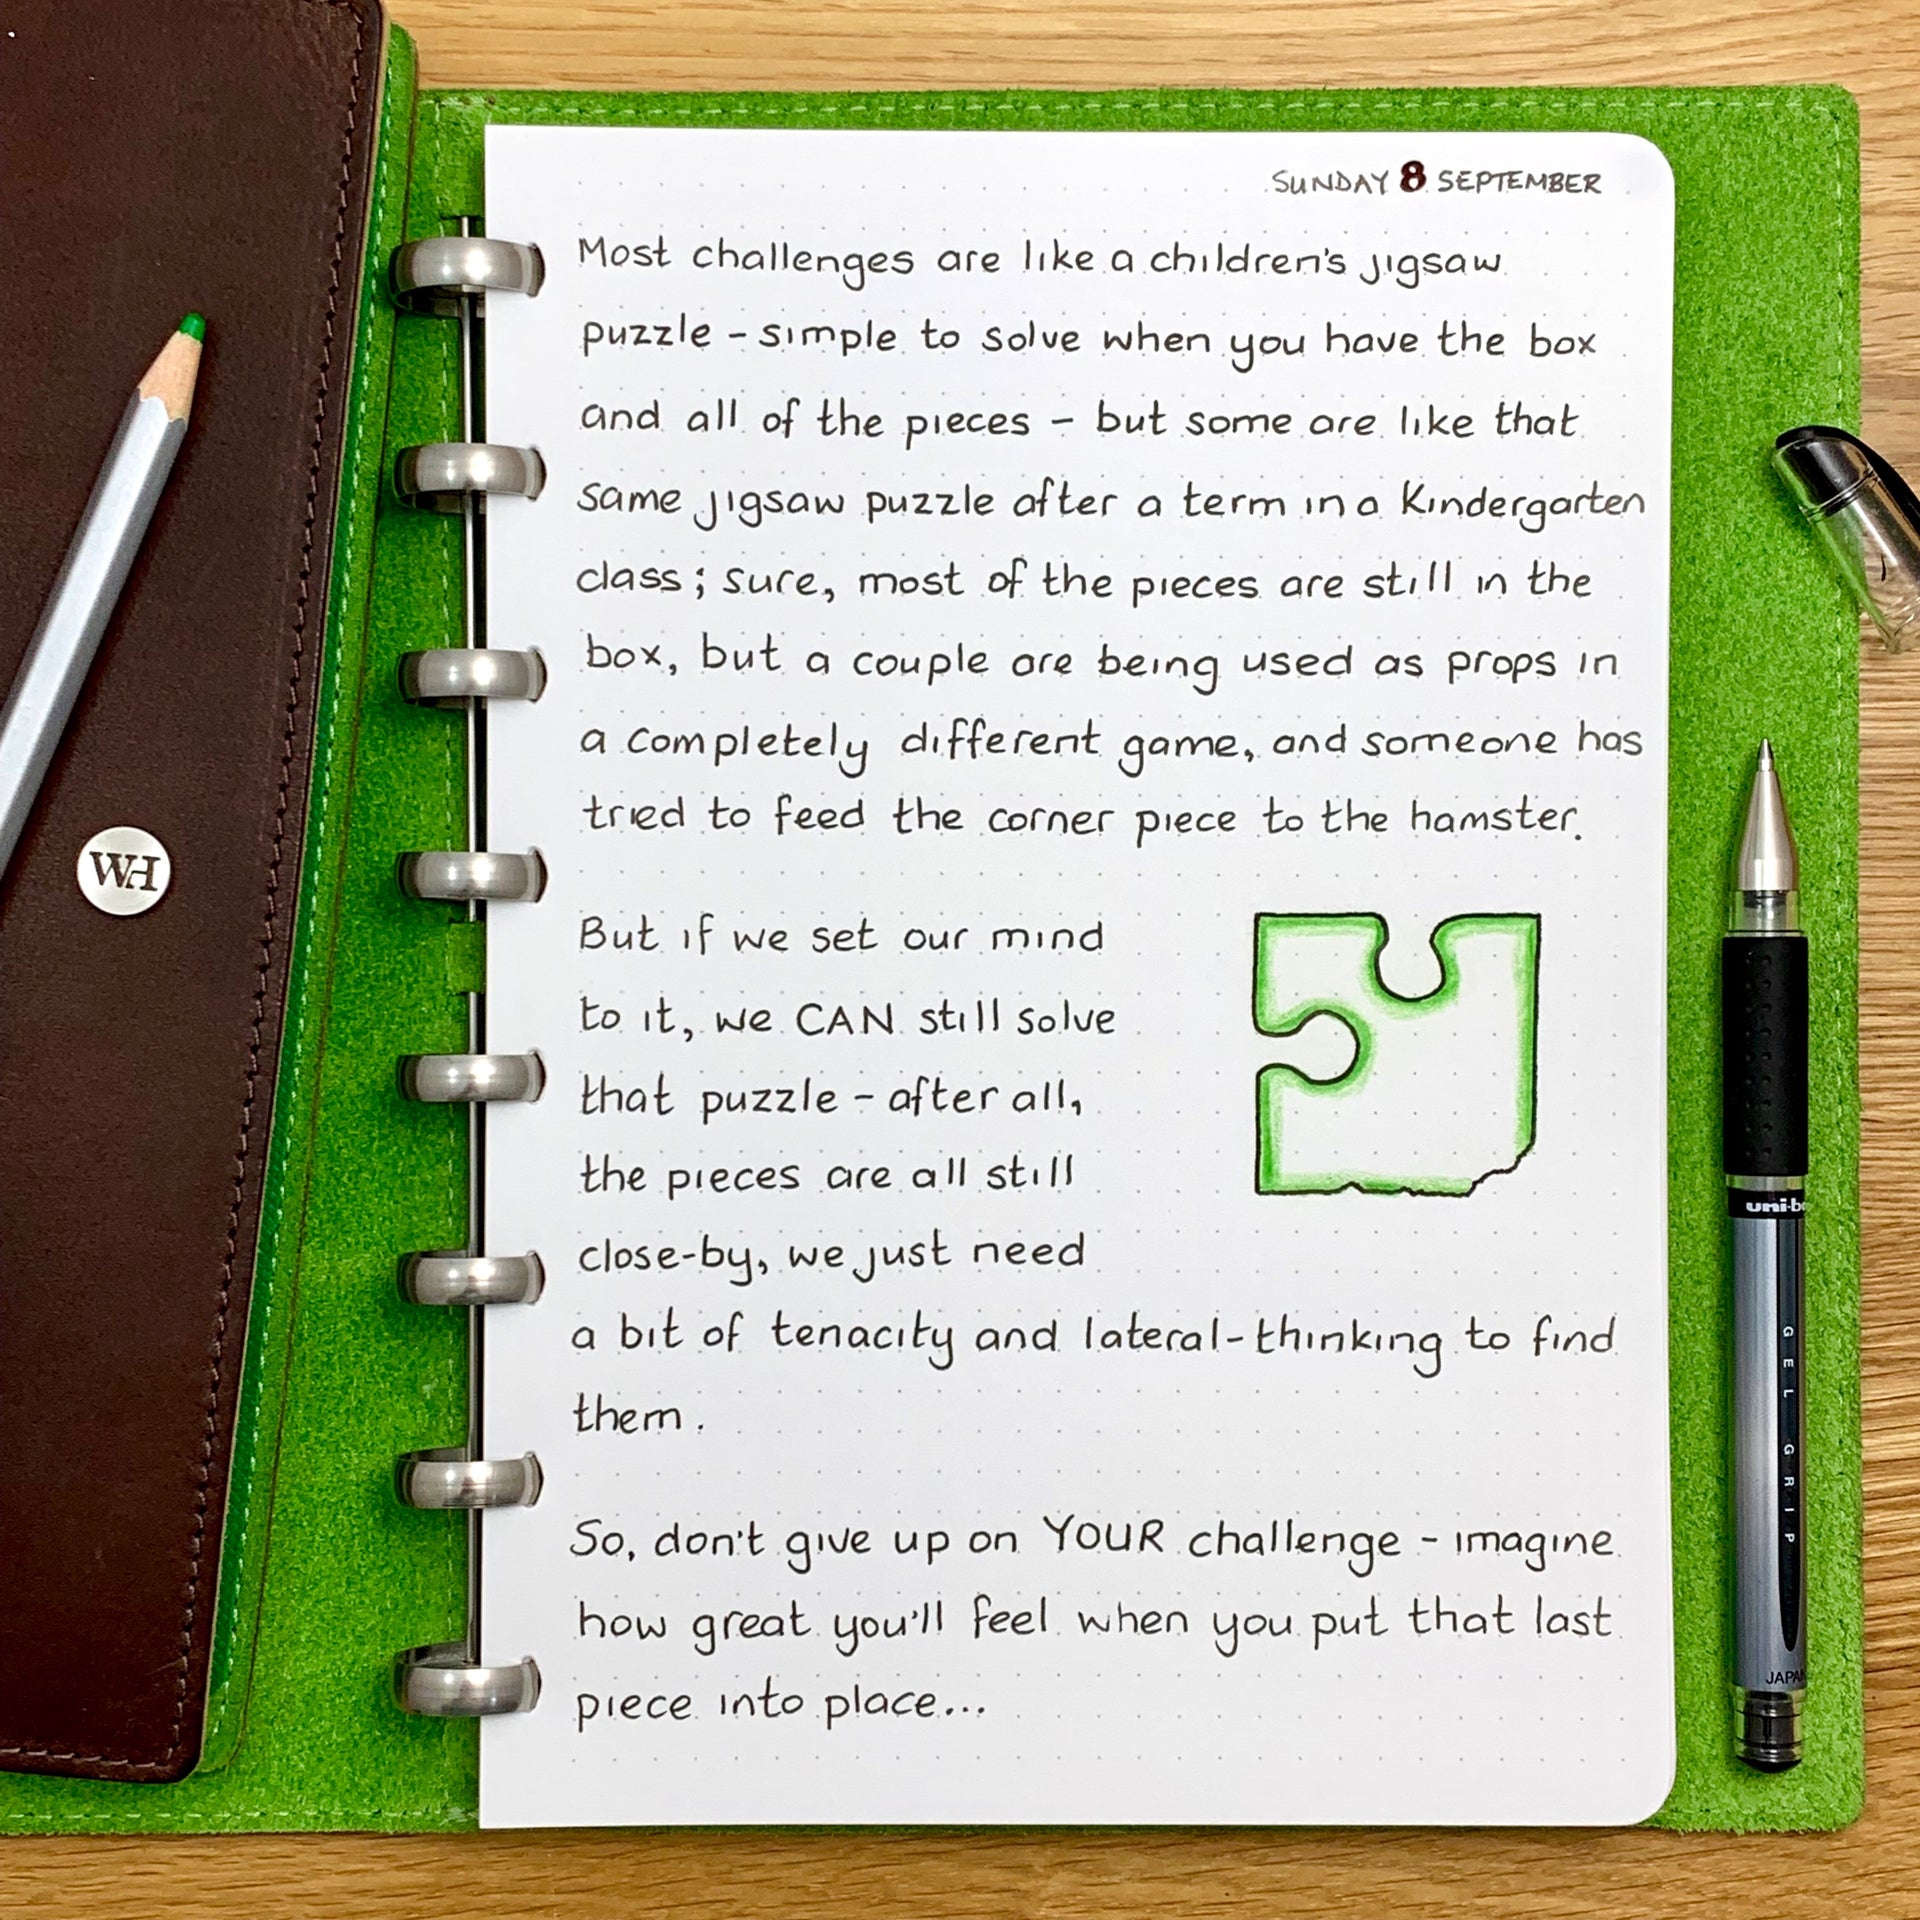 SUNDAY 8 SEPTEMBER
Most challenges are like a children's jigsaw
puzzle - simple to solve when you have the box
and all of the pieces - but some are like that
same jigsaw puzzle after a term in a Kindergarten
class; sure, most of the pieces are still in the
box, but a couple are being used as props in
a completely different game, and someone has
tried to feed the corner piece to the hamster.
But if we set our mind
to it, we CAN still solve
that puzzle - after all,
the pieces are all still
close-by, we just need
a bit of tenacity and lateral-thinking to find
them.
So, don't give up on YOUR challenge - imagine
how great you'll feel when you put that last
piece into place...
WH
uni-b
GEL GRIP
JAPA